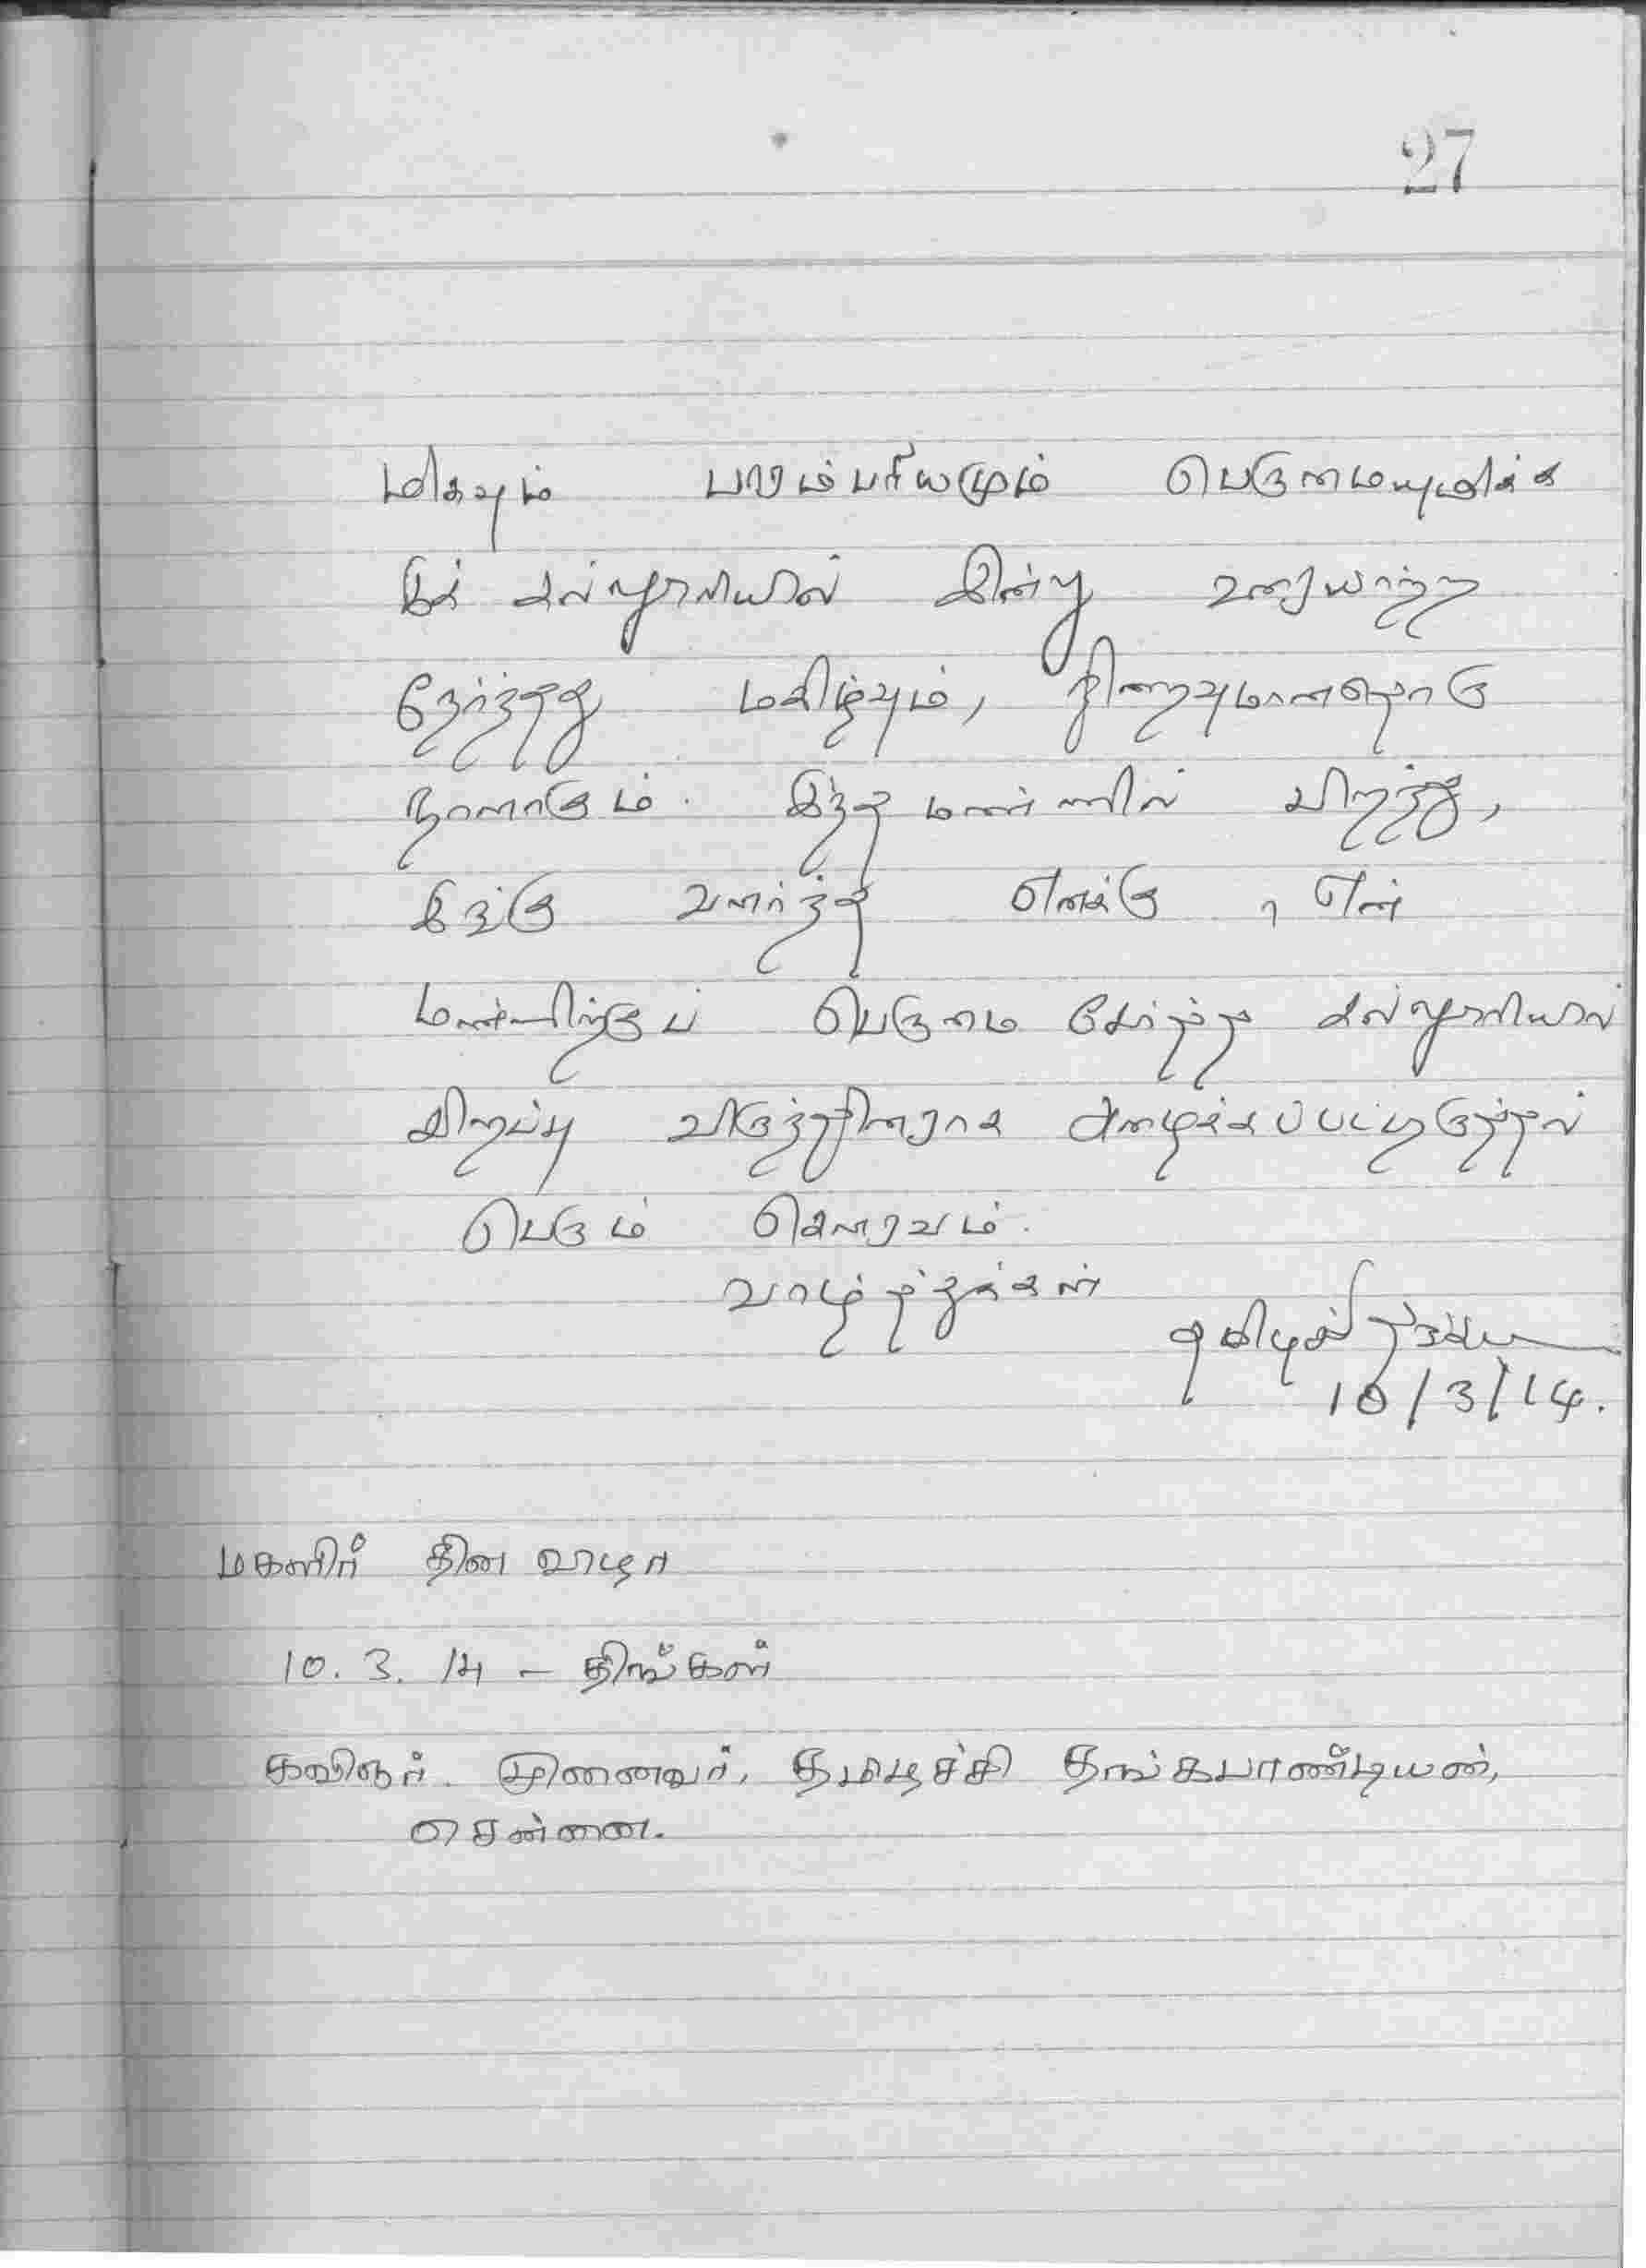 27
மிகவும் பாரம்பரியமும் பெருமையுமிக்க
இக் கல்லூரியில் இன்று உரையாற்ற
நேர்ந்தது மகிழ்வும், நிறைவுமானதொரு
நாளாகும். இந்த மண்ணில் பிறந்து,
இங்கு வளர்ந்த எனக்கு, என்
மண்ணிற்குப் பெருமை சேர்த்த கல்லூரியில்
சிறப்பு விருந்தினராக அழைக்கப்பட்டிருத்தல்
பெரும் கௌரவம்.
வாழ்த்துக்கள்
10/3/14.
மகளிர் தின விழா
10. 3. 14 – திங்கள்
கவிஞர். முனைவர். தமிழச்சி தங்கபாண்டியன்,
சென்னை.